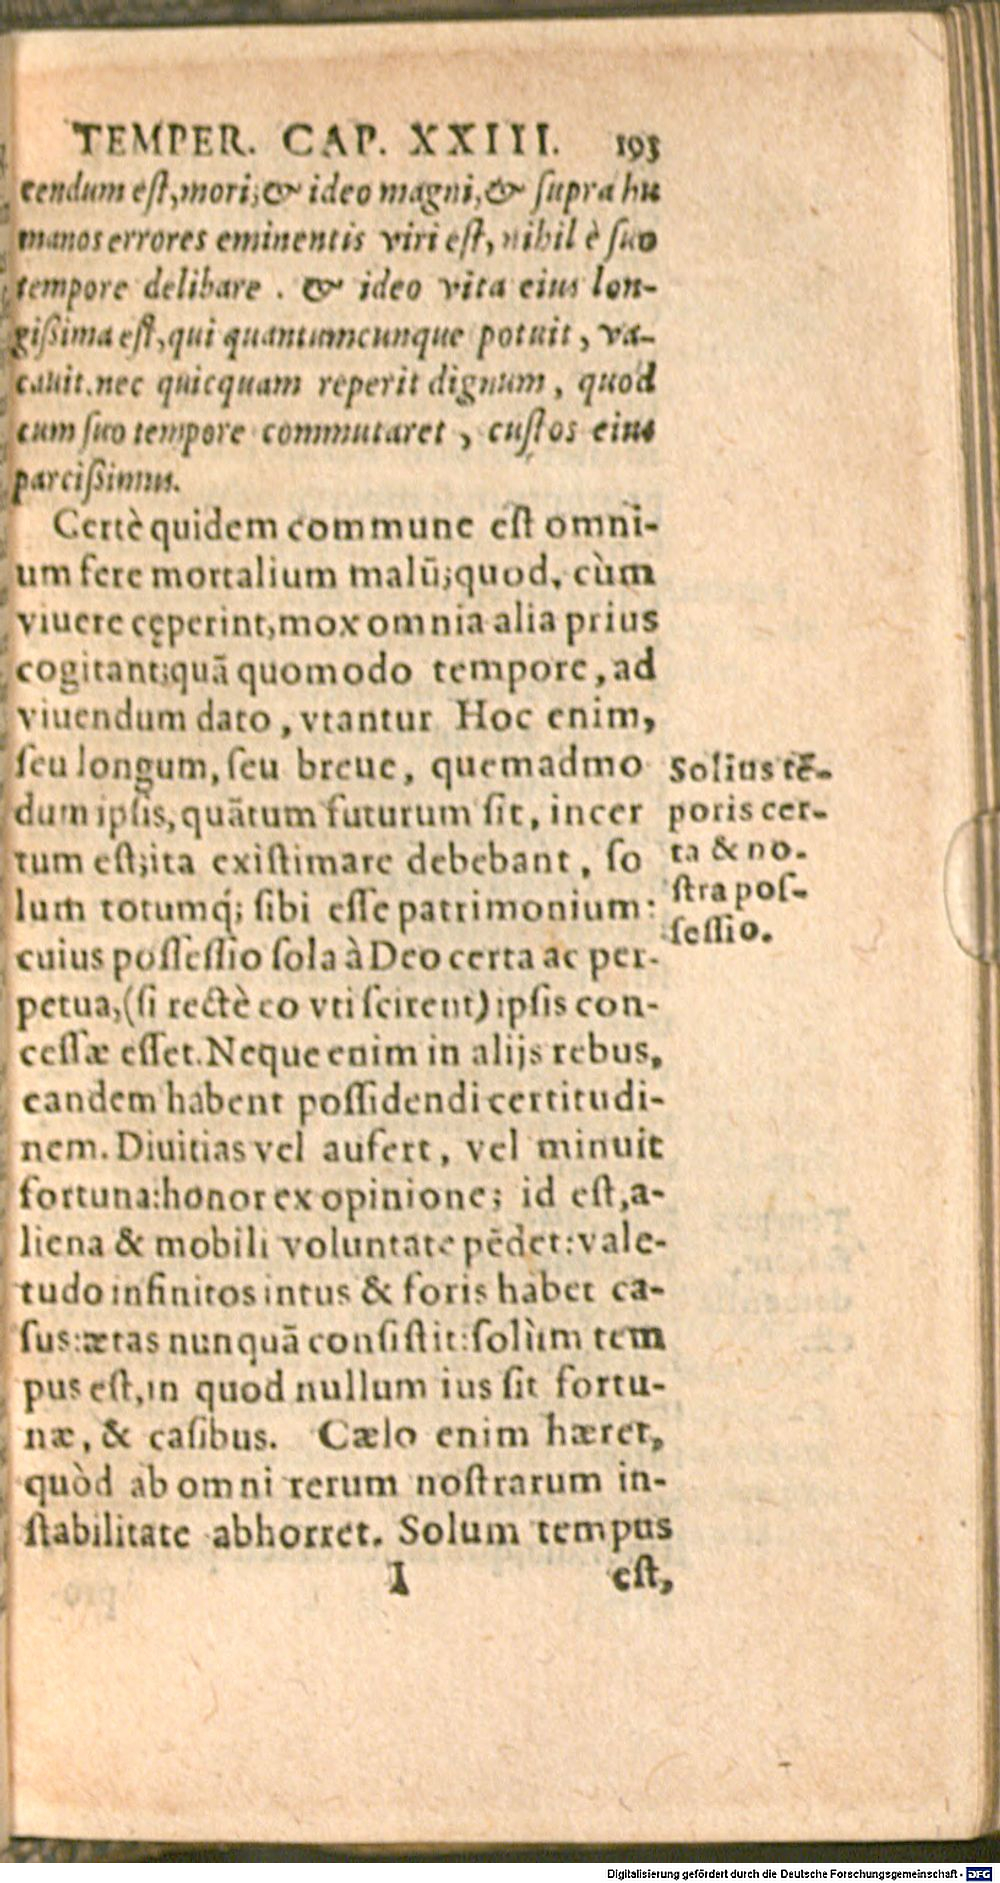 TEMPER. CAP. XXIII. 193
cendum eſt, mori; & ideo magni, & ſupra hu
manos errores eminentis viri eſt, nihil è ſuo
tempore delibare. & ideo vita eius lon-
giſſima eſt, qui quantumcunque potuit, va-
cauit. nec quicquam reperit dignum, quod
cum ſuo tempore commutaret, cuſtos eius
parciſſimus.
Certè quidem commune eſt omni-
um fere mortalium malũ; quod, cùm
viuere cęperint, mox omnia alia prius
cogitant; quã quomodo tempore, ad
viuendum dato, vtantur Hoc enim,
ſeu longum, ſeu breue, quemadmo
dum ipſis, quãtum futurum ſit, incer
tum eſt; ita exiſtimare debebant, ſo
lum totumq́; ſibi eſſe patrimonium:
cuius poſſeſſio ſola à Deo certa ac per-
petua, (ſi rectè eo vti ſcirent) ipſis con-
ceſſæ eſſet. Neque enim in alijs rebus,
eandem habent poſſidendi certitudi-
nem. Diuitias vel aufert, vel minuit
fortuna: honor ex opinione; id eſt, a-
liena & mobili voluntate pẽdet: vale-
tudo infinitos intus & foris habet ca-
ſus: ætas nunquã conſiſtit: ſolùm tem
pus eſt, in quod nullum ius ſit fortu-
næ, & caſibus. Cælo enim hæret,
quòd ab omni rerum noſtrarum in-
ſtabilitate abhorret. Solum tempus
I eſt,
Solius tẽ-
poris cer-
ta & no-
ſtra poſ-
ſeſſio.
Digitalisierung gefördert durch die Deutsche Forschungsgemeinschaft - DFG